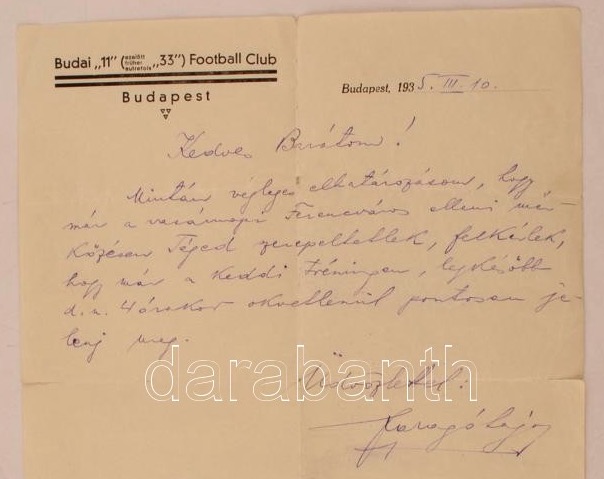 Budai „11” (ezelőtt früher autrefois „33”) Football Club
Budapest
Budapest, 1935. III. 10.
Kedves Barátom!
Mintán végleges elhatározásom, hogy
már a vasárnapi Ferencváros elleni mér-
kőzésen Téged szerepeltetlek, felkérlek,
hogy már a keddi tréningen, legkésőbb
d. u. 4 órakor okvetlenül pontosan je-
lenj meg.
Üdvözlettel:
Faragó Lajos
darabanth